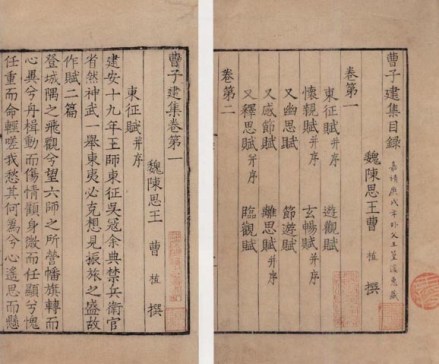 曹子建集目錄
魏陳思王曹植撰
卷第一
東征賦并序 遊觀賦
懷親賦并序 玄暢賦并序
又幽思賦 節遊賦
又感節賦 離思賦并序
又釋思賦并序 臨觀賦
卷第二
曹子建集卷第一
魏陳思王曹植撰
東征賦并序
建安十九年王師東征吳寇余典禁兵衛官
省然神武一舉東夷必克想見振旅之盛故
作賦二篇
登城隅之飛觀兮望六師之所營幡旗轉而
心異兮舟楫動而傷情顧身微而任顯兮愧
任重而命輕嗟我愁其何為兮心遙思而懸